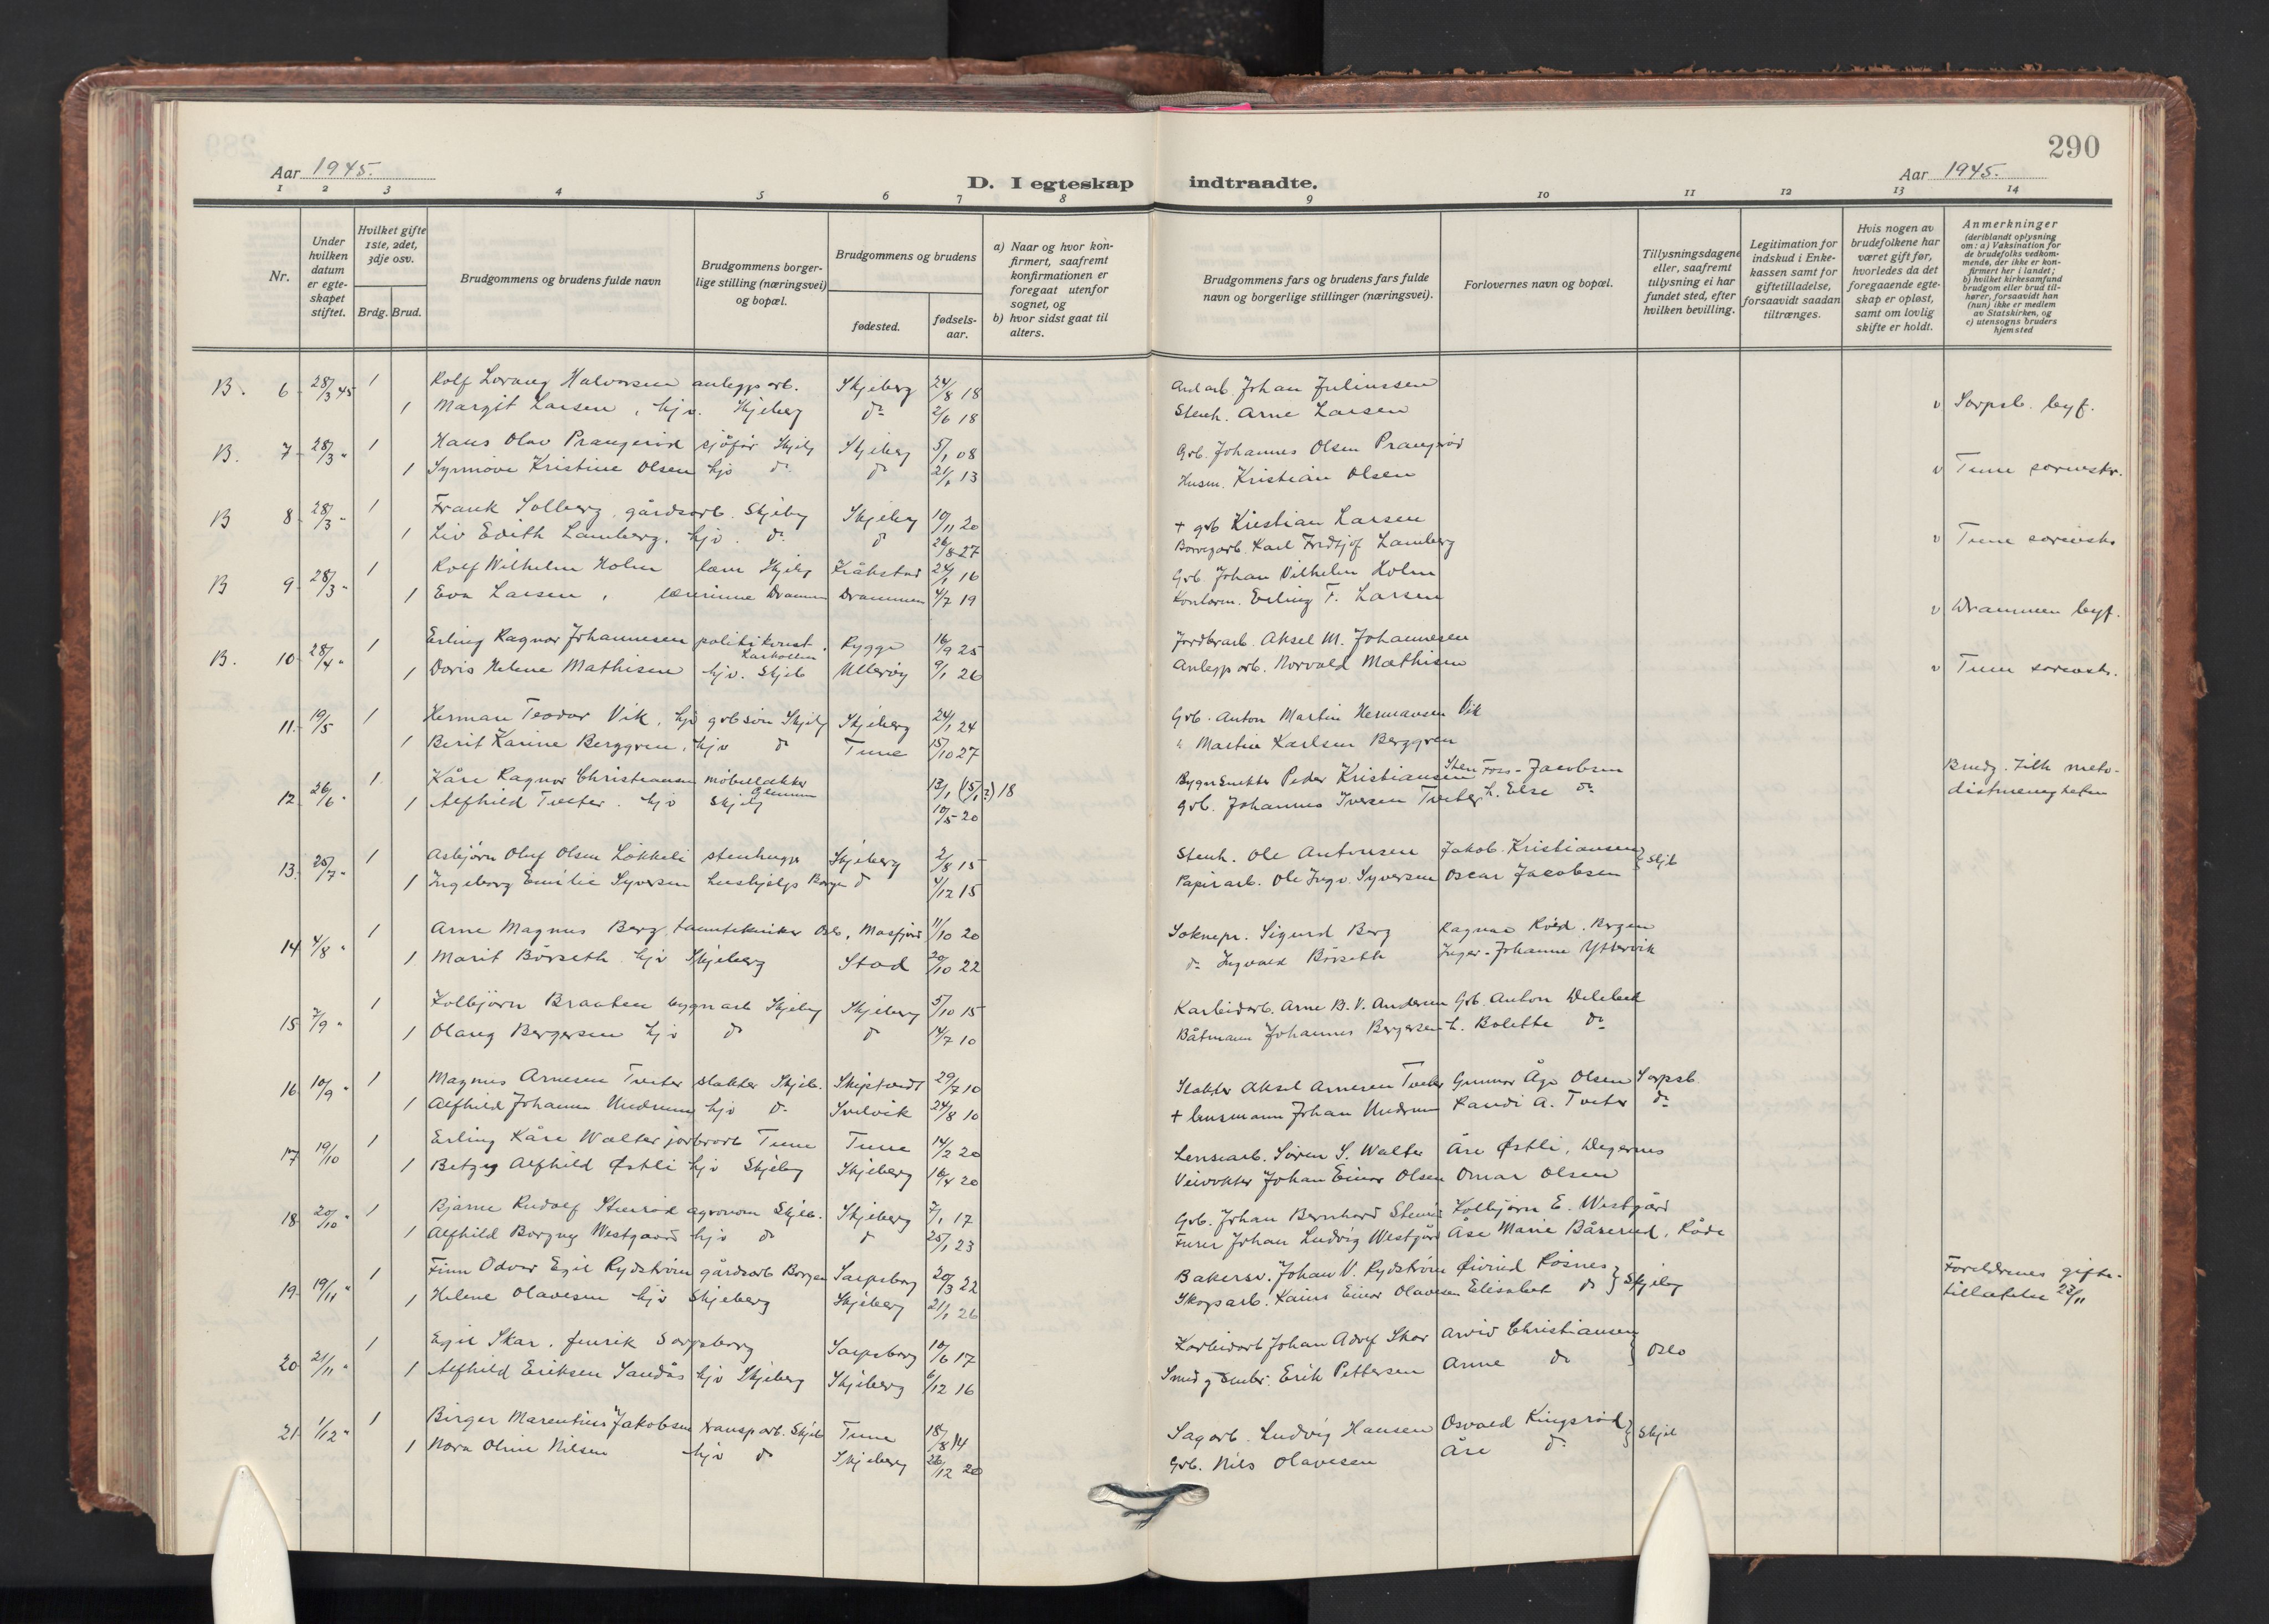 290
Aar 1945.
D. I egteskap indtraadte.
Aar 1945.
1 2 3 4 5 6 7 8 9 10 11 12 13 14
Nr.
Under hvilken datum er egteskapet stiftet.
Hvilket gifte 1ste, 2det, 3dje osv.
Brdg. Brud.
Brudgommens og brudens fulde navn
Brudgommens borgerlige stilling (næringsvei) og bopæl.
Brudgommens og brudens
fødested.
fødselsaar.
a) Naar og hvor konfirmert, saafremt konfirmationen er foregaat utenfor sognet, og
b) hvor sidst gaat til alters.
Brudgommens fars og brudens fars fulde navn og borgerlige stillinger (næringsvei).
Forlovernes navn og bopæl.
Tillysningsdagene eller, saafremt tillysning ei har fundet sted, efter hvilken bevilling.
Legitimation for indskud i Enkekassen samt for giftetilladelse, forsaavidt saadan tiltrænges.
Hvis nogen av brudefolkene har været gift før, hvorledes da det foregaaende egteskap er opløst, samt om lovlig skifte er holdt.
Anmerkninger
(deriblandt oplysning om: a) Vaksination for de brudefolks vedkommende, der ikke er konfirmert her i landet; b) hvilket kirkesamfund brudgom eller brud tilhører, forsaavidt han (hun) ikke er medlem av Statskirken, og c) utensogns bruders hjemsted
B. 6 28/3 45 1 Rolf Lorang Halvorsen anleggsarb. Skjeberg 24/8 18 Johan Juliussen
1 Margit Larsen, hjv. Skjeberg do 2/6 18 Stenh. Arne Larsen v Sarpsb. byf.
B. 7 28/3 " 1 Hans Olav Prangerød sjøfør Skjeb Skjeberg 5/1 08 Grb. Johannes Olsen Prangerød
1 Synnøve Kristine Olsen hjv do do 21/1 13 Husm. Kristian Olsen v Tune sorenskr.
B 8 28/3 " 1 Frank Solberg gårdsarb. Skjeberg Skjeberg 10/11 20 + grb Kristian Larsen
1 Liv Edith Lamberg, hjv. do do 26/8 27 Borregarb. Karl Fridtjof Lamberg v Tune sorensk.
B 9 28/3 " 1 Rolf Wilhelm Holm lærer Skjeberg Kråkstad 24/1 16 Grb. Johan Vilhelm Holm
1 Eva Larsen, lærerinne Drammen Drammen 4/7 19 Kontorm. Erling F. Larsen v Drammen byf.
B. 10 28/4 " 1 Erling Ragnar Johannesen politikonst. Larkollen Rygge 16/9 25 Jordbrarb. Aksel M. Johannesen
1 Doris Helene Mathisen hjv. Skjeb Ullerøy 9/1 26 Anleggsarb. Norvald Mathisen v Tune sorensk.
11. 19/5 1 Herman Teodor Vik, hjv grbsøn Skjeb Skjeberg 24/1 24 Grb. Anton Martin Hermansen Vik
1 Berit Karine Berggren, hjv do Tune 15/10 27 " Martin Karlsen Berggren
12 26/6 " 1 Kåre Ragnar Christiansen møbelsnekker Glemmen 13/1 (15/1?) 18 Bygnsnekker Peder Kristiansen Sten Foss-Jacobsen Brudg. tilh. metodistmenigheten
1 Alfhild Tveter. hjv Skjeberg 10/5 20 grb. Johannes Iversen Tveter h. Else do
13. 25/7 " 1 Asbjørn Oluf Olsen Løkkeli stenhugger Skjeberg 2/8 15 Stenh. Ole Antonsen Jakob Kristiansen } Skjb
1 Ingeborg Emilie Syversen hushjelp Borgen do 4/12 15 Papirarb. Ole Ingv. Syversen Oscar Jacobsen
14 4/8 " 1 Arne Magnus Berg, tanntekniker Oslo, Masfjord 11/10 20 Soknepr. Sigurd Berg Ragnar Bergen
1 Marit Børseth hjv Skjeberg Stod 20/10 22 do Ingvald Børseth Inger-Johanne Yttervik
15 7/9 " 1 Kolbjørn Braaten bygnarb Skjeberg Skjeberg 5/10 15 Karbidarb. Arne B. V. Andersen Grb. Anton Delebek
1 Olaug Bergersen hjv do do 14/7 10 Båtmann Johannes Bergersen h. Bolette do
16 10/9 " 1 Magnus Arnesen Tveter slakter Skjeb. Skiptvedt 29/7 10 Slakter Aksel Arnesen Tveter Gunnar Åge Olsen Sarpsb.
1 Alfhild Johanne Undrum hjv do Svelvik 24/8 10 + lensmann Johan Undrum Randi A. Tveter do
17 19/10 1 Erling Kåre Walter jordbrarb Tune Tune 14/2 20 Lensearb. Søren S. Walter Åre Østli, Degernes
1 Betzy Alfhild Østli hjv Skjeberg Skjeberg 16/4 20 Veivokter Johan Einar Olsen Omar Olsen
18 20/10 " 1 Bjarne Rudolf Stenrød agronom Skjeb. Skjeberg 7/1 17 Grb. Johan Bernhard Stenrød Kolbjørn E. Westgård
1 Alfhild Borgny Westgaard hjv do do 25/1 23 Furer Johan Ludvig Westgård Åse Marie Bårerud, Råde
19. 19/11 " 1 Finn Odvar Egil Rydstrøm gårdsarb Borgen Sarpsborg 20/3 22 Bakersv. Johan V. Rydstrøm Øivind Røsnes } Skjeberg Foreldrenes giftetillatelse 22/11
1 Helene Olavesen hjv Skjeberg Skjeberg 21/1 26 Skogsarb. Einar Olavesen Elisabet do
20 21/11 " 1 Egil Skar, Sarpsborg Sarpsborg 10/6 17 Karbidarb Johan Adolf Skar Arvid Christiansen } Oslo
1 Alfhild Eriksen Sandås hjv Skjeberg Skjeberg 6/12 16 Smed g Erik Pettersen Anne do
21 1/12 " 1 Birger Marentius Jakobsen transparb. Skjeb Tune 18/8 14 Sagarb. Ludvig Hansen Osvald Kingsrød } Skjeb
1 Nora Oline Nilsen hjv do Skjeberg 26/12 20 Grb. Nils Olavesen Åse do